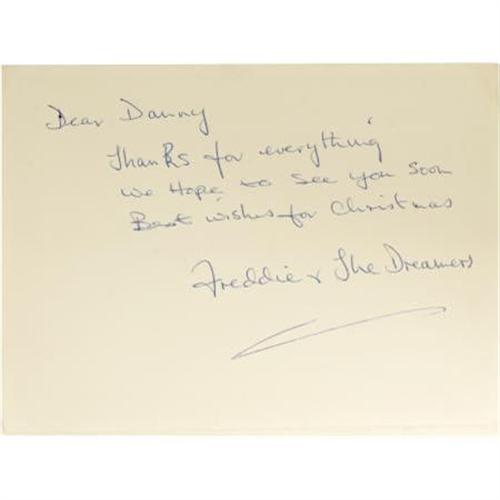 Dear Danny
Thanks for everything
we Hope to see you soon
Best wishes for Christmas
Freddie & The Dreamers